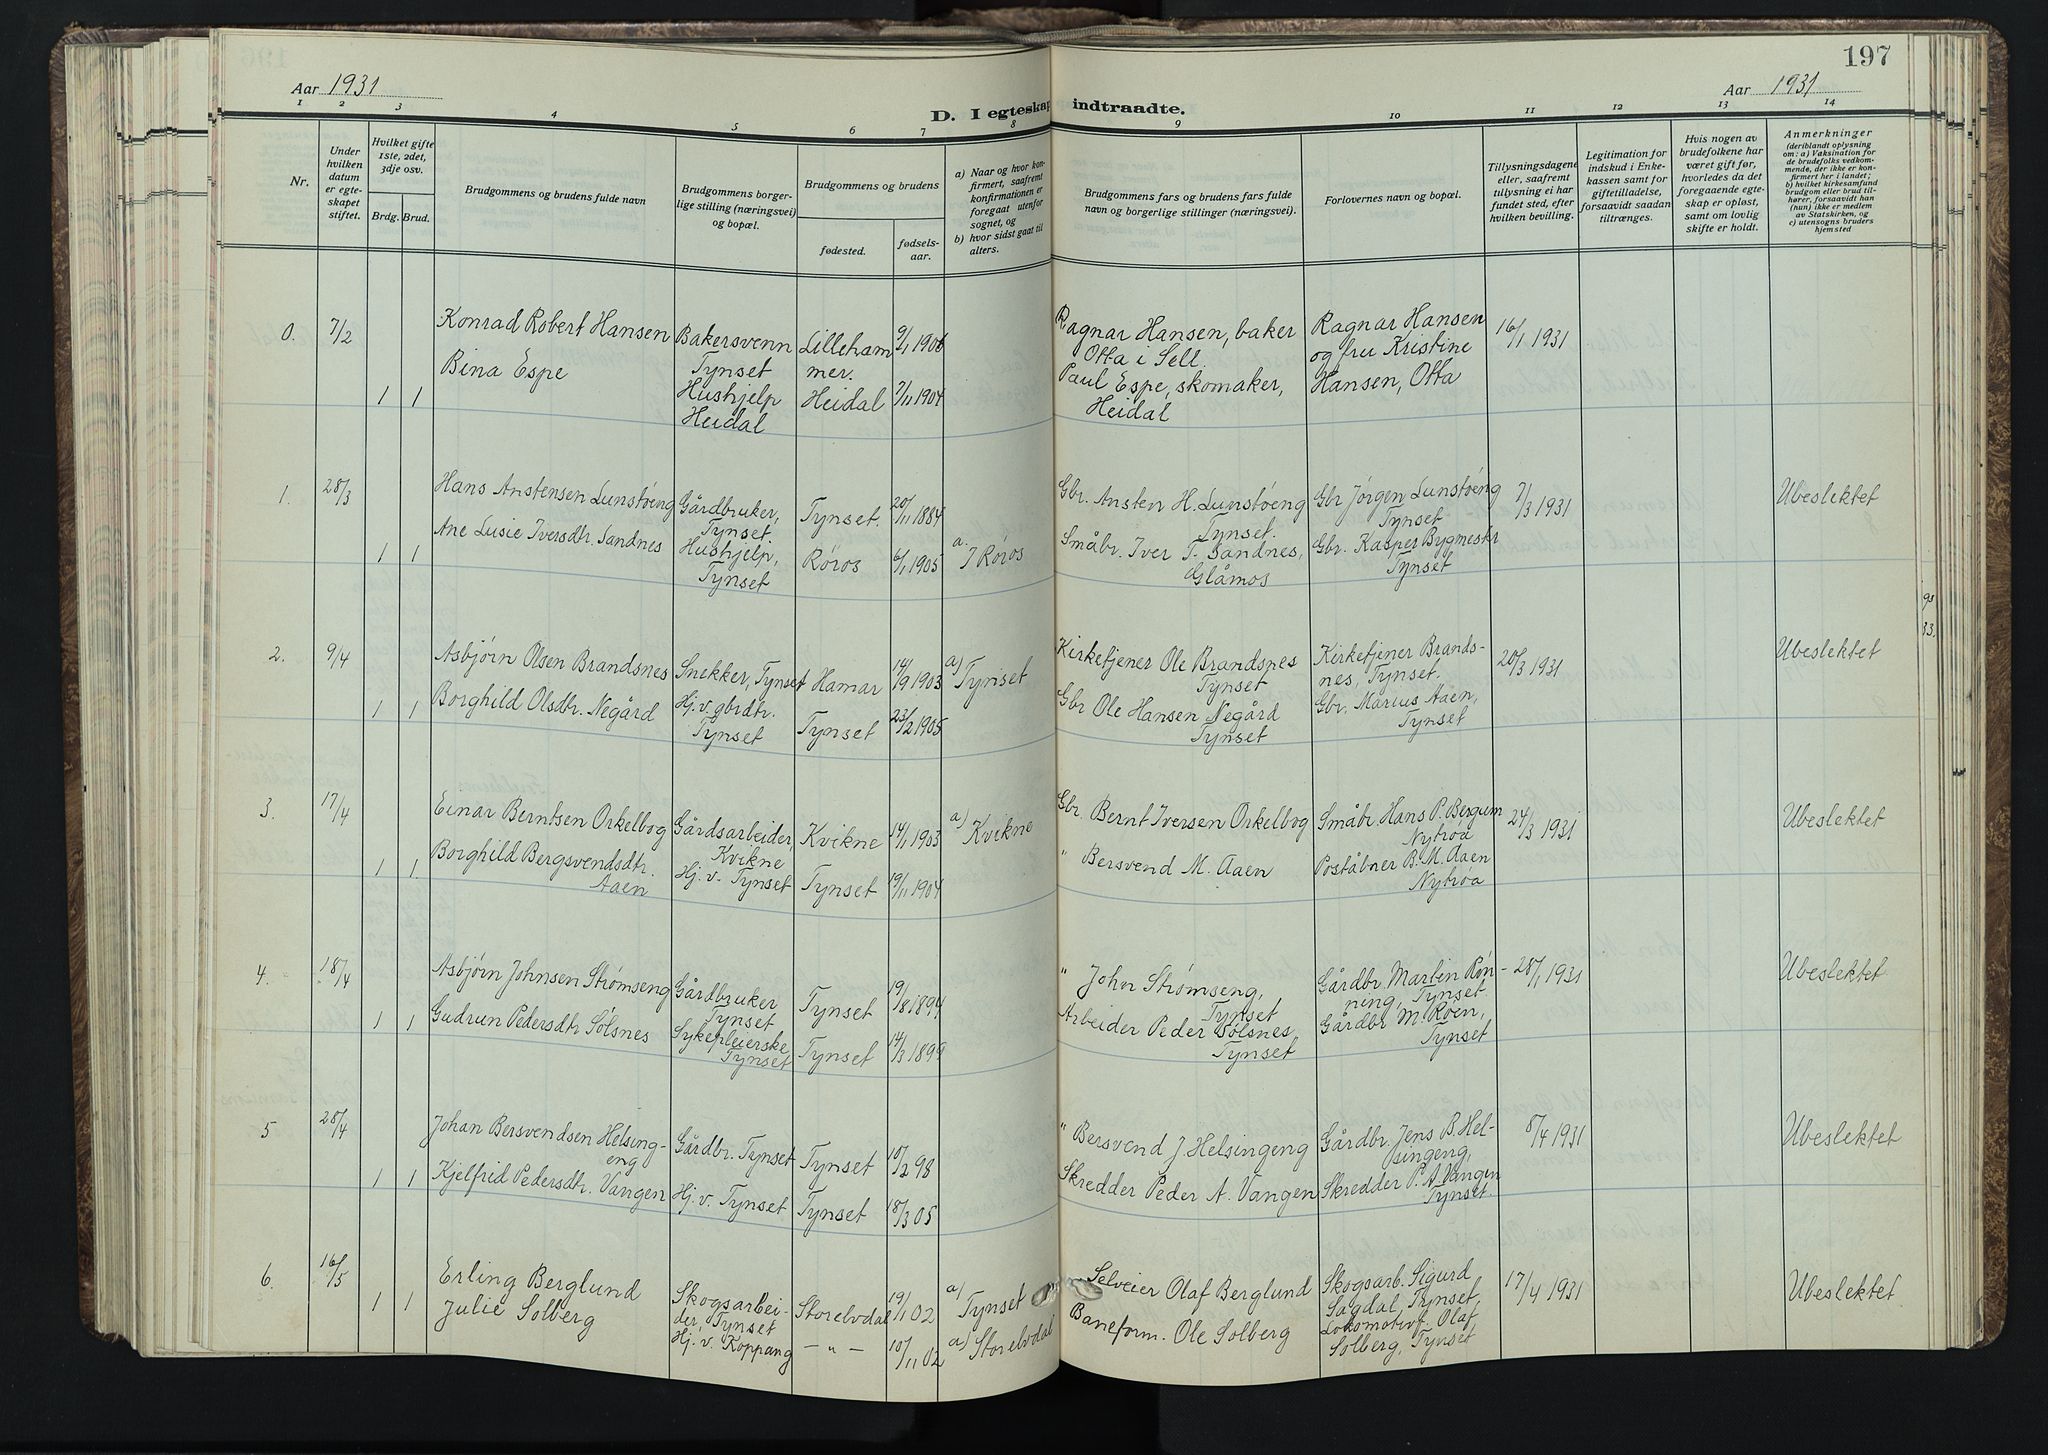 197
Aar 1931
Aar 1931
D. I egteskap indtraadte.
1 2 3 4 5 6 7 8 9 10 11 12 13 14
Nr.
Under hvilken datum er egteskapet stiftet.
Hvilket gifte 1ste, 2det, 3dje osv.
Brdg. Brud.
Brudgommens og brudens fulde navn
Brudgommens borgerlige stilling (næringsvei) og bopæl.
Brudgommens og brudens
fødested.
fødselsaar.
a) Naar og hvor konfirmert, saafremt konfirmationen er foregaat utenfor sognet, og
b) hvor sidst gaat til alters.
Brudgommens fars og brudens fars fulde navn og borgerlige stillinger (næringsvei).
Forlovernes navn og bopæl.
Tillysningsdagene eller, saafremt tillysning ei har fundet sted, efter hvilken bevilling.
Legitimation for indskud i Enkekassen samt for giftetilladelse, forsaavidt saadan tiltrænges.
Hvis nogen av brudefolkene har været gift før, hvorledes da det foregaaende egteskap er opløst, samt om lovlig skifte er holdt.
Anmerkninger
(deriblandt oplysning om: a) Vaksination for de brudefolks vedkommende, der ikke er konfirmert her i landet; b) hvilket kirkesamfund brudgom eller brud tilhører, forsaavidt han (hun) ikke er medlem av Statskirken, og c) utensogns bruders hjemsted
0. 7/2
1 1
Konrad Robert Hansen
Bina Espe
Bakersvenn
Tynset
Hushjelp
Heidal
Lilleham
mer.
Heidal
9/1 1906
7/11 1904
Ragnar Hansen, baker
Otta i Sell.
Paul Espe, skomaker,
Heidal
Ragnar Hansen
og fru Kristine
Hansen, Otta
16/1 1931
1. 28/3
1 1
Hans Anstensen Lunstøeng
Ane Lusie Iversdtr. Sandnes
Gårdbruker,
Tynset.
Hushjelp,
Tynset
Tynset.
Røros
20/11 1884
6/1 1905
a. I Røros
Gbr. Ansten H. Lunstøeng
Tynset.
Småbr. Iver T. Sandnes,
Glåmos
Gbr Jørgen Lunstøeng
Tynset
Gbr. Kasper Bygmestr
Tynset
7/3 1931
Ubeslektet
2. 9/4
1 1
Asbjørn Olsen Brandsnes
Borghild Olsdtr. Negård
Snekker, Tynset
Hj. v. gbrdtr.
Tynset
Hamar
Tynset
14/9 1903
23/2 1905
a) Tynset
Kirketjener Ole Brandsnes
Tynset
Gbr Ole Hansen Negård
Tynset
Kirketjener Brands-
nes, Tynset.
Gbr. Marius Aaen,
Tynset
20/3 1931
Ubeslektet
3. 17/4
1 1
Einar Berntsen Orkelbog
Borghild Bergsvendsdtr.
Aaen
Gårdsarbeider,
Kvikne
Hj. v. Tynset
Kvikne
Tynset
14/1 1903
19/11 1904
a) Kvikne
Gbr. Bernt Iversen Orkelbog
" Bersvend M. Aaen
Småbr Hans P. Bergum
Nytrøa
Poståbner B. M. Aaen
Nytrøa
24/3 1931
Ubeslektet
4. 18/4
1 1
Asbjørn Johnsen Strømseng
Gudrun Pedersdtr Sølsnes
Gårdbruker
Tynset
Sykepleierske
Tynset
Tynset
Tynset
19/8 1894
14/3 1899
" John Strømseng,
Tynset
Arbeider Peder Sølsnes,
Tynset
Gårdbr. Martin Røn-
ning, Tynset.
Gårdbr M. Røen,
Tynset
28/1 1931
Ubeslektet
5 28/4
1 1
Johan Bersvendsen Helsing-
eng
Kjelfrid Pedersdtr. Vangen
Gårdbr. Tynset
Hj. v. Tynset
Tynset
Tynset
10/2 98
18/3 05
" Bersvend J Helsingeng
Skredder Peder A. Vangen
Gårdbr. Jens B. Hel-
singeng,
Skredder P. A. Vangen
Tynset.
8/4 1931
Ubeslektet
6. 16/5
1 1
Erling Berglund
Julie Solberg
Skogsarbei-
der, Tynset
Hj. v. Koppang
Storelvdal
— " —
19/1 02
10/11 02
a) Tynset
a) Storelvdal
Selveier Olaf Berglund
Baneform. Ole Solberg
Skogsarb. Sigurd
Sagdal, Tynset
Lokomotivf. Olaf
Solberg, Tynset
17/4 1931
Ubeslektet